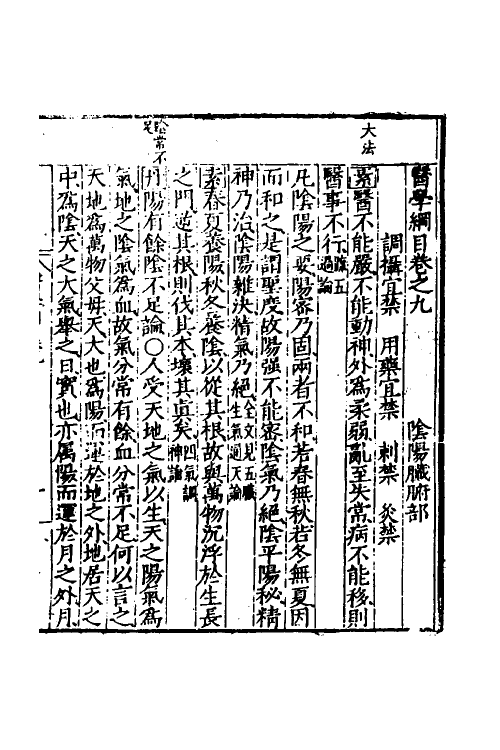 醫學綱目卷之九　陰陽臟腑部
調攝宜禁　用藥宜禁　刺禁　灸禁
大法
素醫不能嚴不能動神外為柔弱亂至失常病不能移則
醫事不行疏五過論
凡陰陽之要陽密乃固兩者不和若春無秋若冬無夏因
而和之是謂聖度故陽强不能密陰氣乃絕陰平陽秘精
神乃治陰陽離決精氣乃絕全文見五臟生氣通天論
素春夏養陽秋冬養陰以從其根故與萬物沉浮於生長
之門逆其根則伐其本壞其眞矣四氣調神論
陰常不足
丹陽有餘陰不足論○人受天地之氣以生天之陽氣為
氣地之陰氣為血故氣分常有餘血分常不足何以言之
天地為萬物父母天大也為陽而運於地之外地居天之
中為陰天之大氣舉之日實也亦屬陽而運於月之外月